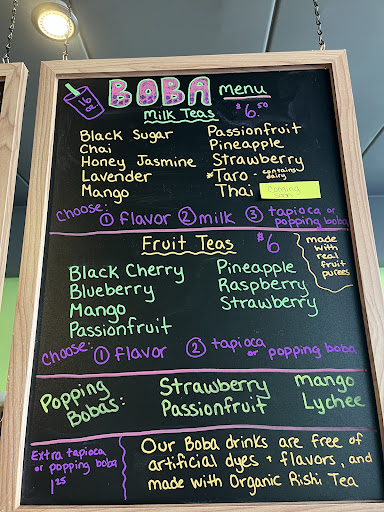 16 oz.
BOBA menu
Milk Teas $6.50
Black Sugar Passionfruit
Chai Pineapple
Honey Jasmine Strawberry
Lavender *Taro - contains dairy
Mango Thai Coming Soon
Choose: ① flavor ② milk ③ tapioca or popping boba
Fruit Teas $6
made with real fruit purees
Black Cherry Pineapple
Blueberry Raspberry
Mango Strawberry
Passionfruit
Choose: ① flavor ② tapioca or popping boba
Popping Bobas: Strawberry Mango
Passionfruit Lychee
Extra tapioca or popping boba 1.25
Our Boba drinks are free of
artificial dyes + flavors, and
made with Organic Rishi Tea